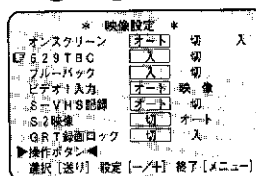 ＊ 映像設定 ＊
オンスクリーン オート 切 入
629TBC 入 切
ブルーバック 入 切
ビデオ1入力 オート 映像
S-VHS記録 オート 切
S2映像 切 オート
GRT録画ロック 切 入
▶操作ボタン◀
選択[送り] 設定[ー/+] 終了[メニュー]